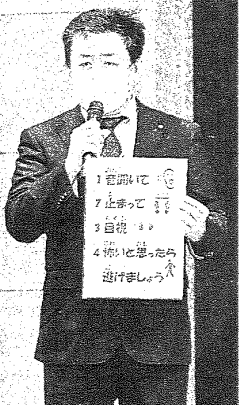 1 音聞いて
2 止まって
3 目視
4 怖いと思ったら
逃げましょう